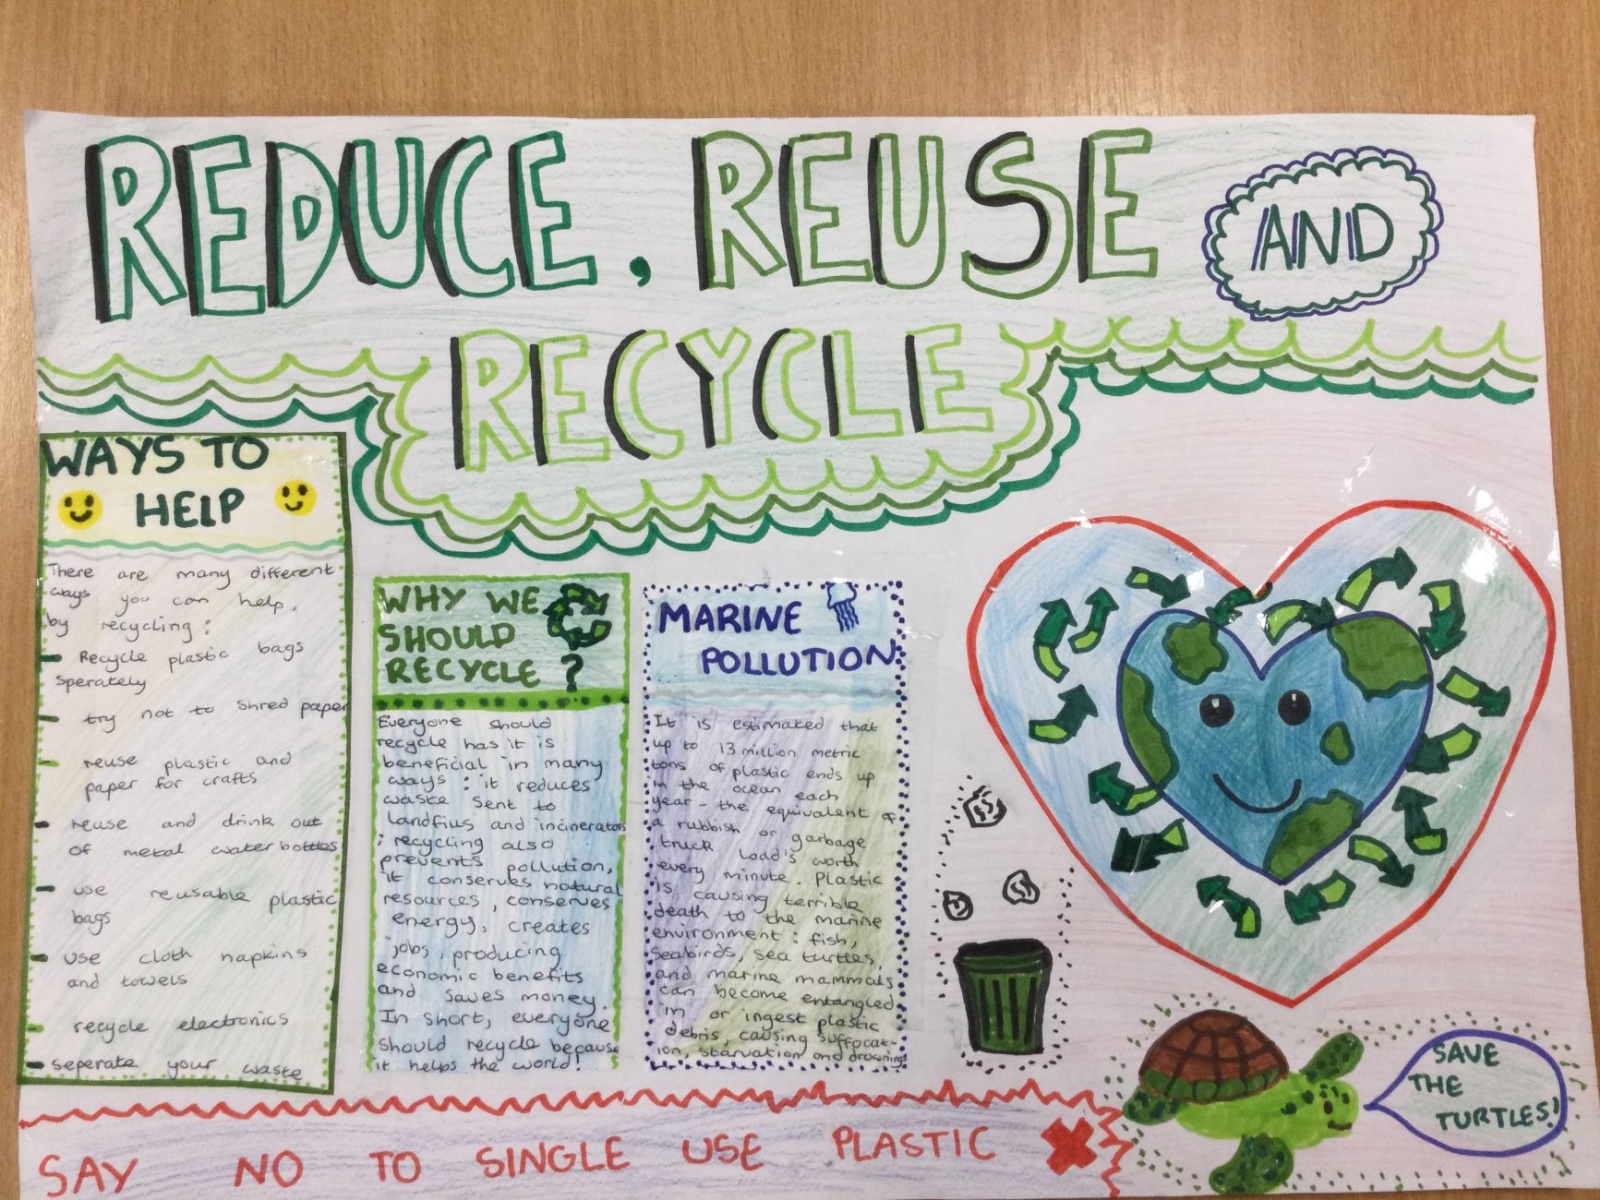 REDUCE, REUSE
AND
RECYCLE
WAYS TO
HELP
There are many different
ways you can help,
by recycling:
Recycle plastic bags
sperately
try not to shred paper
reuse plastic and
paper for crafts
reuse and drink out
of metal water bottles
use reusable plastic
bags
use cloth napkins
and towels
recycle electronics
seperate your waste
WHY WE
SHOULD
RECYCLE ?
Everyone should
recycle has it is
beneficial in many
ways : it reduces
waste sent to
landfills and incinerators
; recycling also
prevents pollution,
it conserves natural
resources, conserves
energy, creates
jobs, producing
economic benefits
and saves money.
In short, everyone
should recycle because
it helps the world!
MARINE
POLLUTION
It is estimated that
up to 13 million metric
tons of plastic ends up
in the ocean each
year - the equivalent of
a rubbish or garbage
truck load's worth
every minute. Plastic
is causing terrible
death to the marine
environment : fish,
seabirds, sea turtles
and marine mammals
can become entangled
in or ingest plastic
debris, causing suffocat-
ion, starvation and drowning
SAVE
THE
TURTLES!
SAY NO TO SINGLE USE PLASTIC